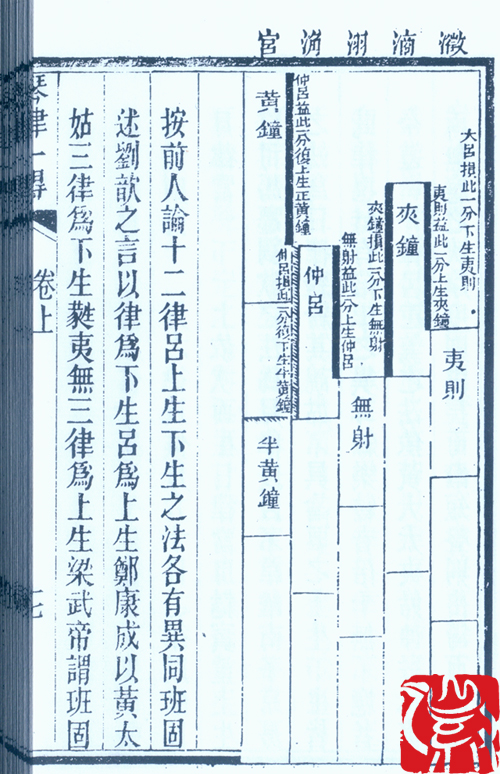 宮
大呂損此一分下生夷則
夷則益此一分上生夾鐘
夷則
夾鐘
夾鐘損此一分下生無射
無射益此一分上生仲呂
無射
仲呂
仲呂益此一分復上生正黃鐘
仲呂損此一分復下生半黃鐘
黃鐘
半黃鐘
按前人論十二律呂上生下生之法各有異同班固
述劉歆之言以律爲下生呂爲上生鄭康成以黃太
姑三律爲下生蕤夷無三律爲上生梁武帝謂班固
琴律一得
卷上
七